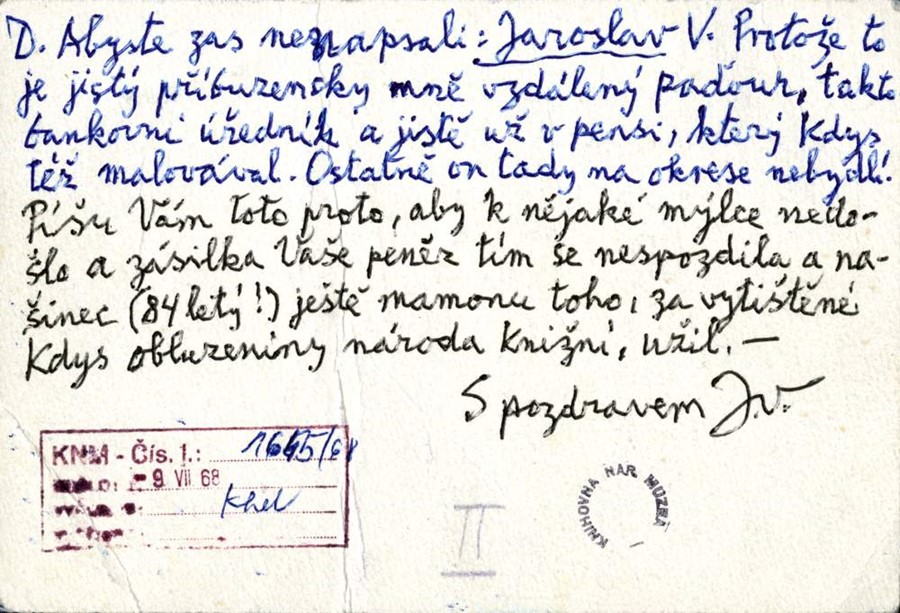 D. Abyste zas nenapsali: Jaroslav V. Protože to
je jistý příbuzensky mně vzdálený paďour, takto
bankovní úředník a jistě už v pensi, který kdys
též malovával. Ostatně on tady na okrese nebydlí.
Píšu Vám toto proto, aby k nějaké mýlce nedo-
šlo a zásilka Vaše peněz tím se nespozdila a na-
šinec (84letý!) ještě mamonu toho, za vytištěné
kdys obluzeniny národa knižní, užil. —
S pozdravem JV.
KNM - Čís. j.: 1665/68
- 9. VII 68
Khel
II
KNIHOVNA NÁR MUZEA